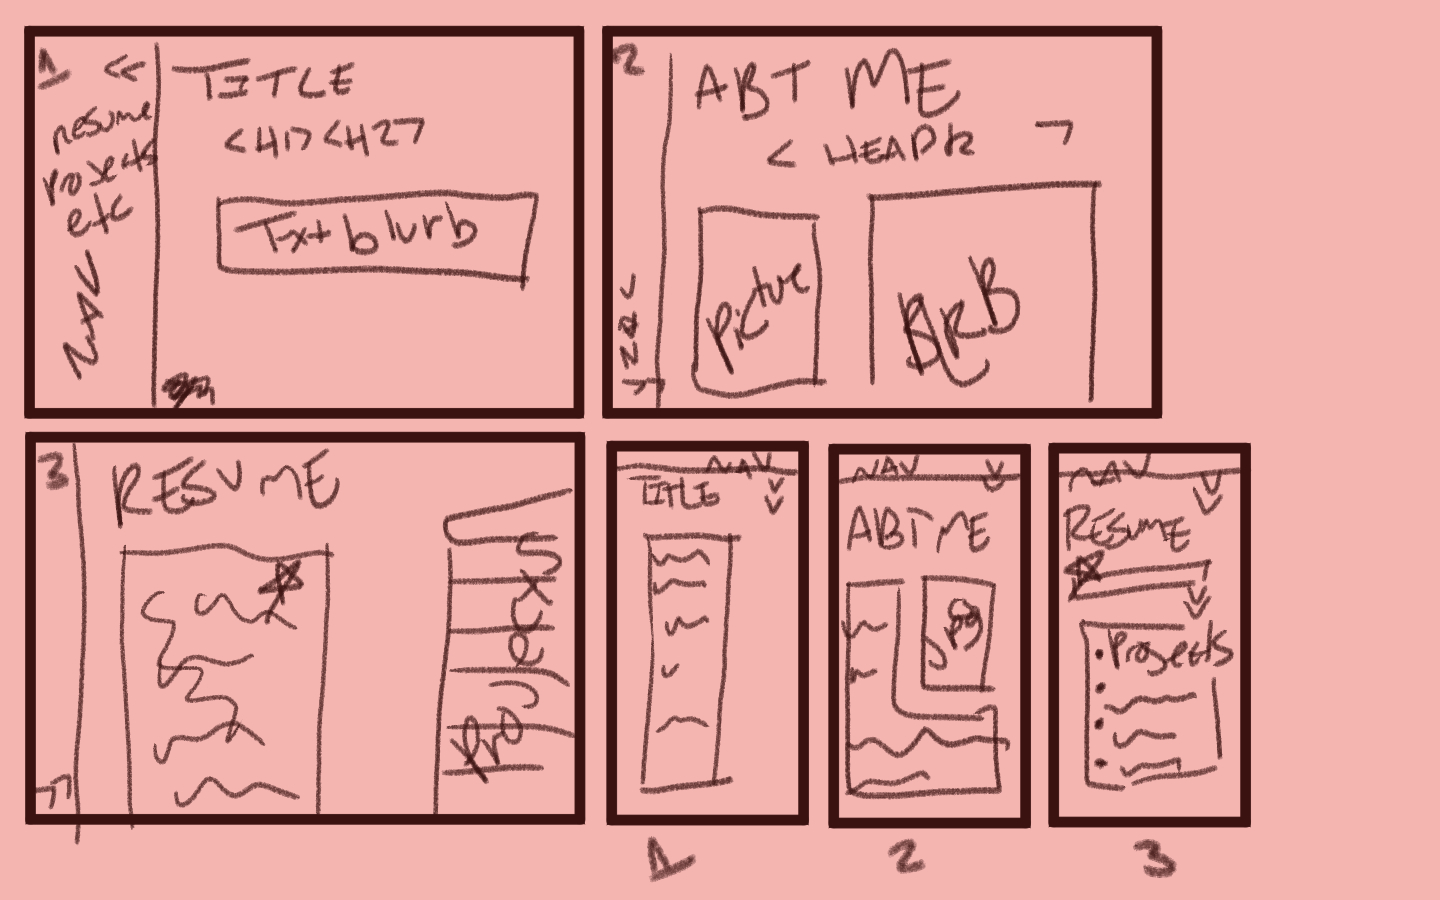 1 <<
resume
projects
etc
NAV
TITLE
<H1><H2>
Txt blurb
2
ABT ME
< HEADR >
Picture
BRB
>>
3
RESUME
Projects
>>
NAV
TITLE
1
NAV
ABT ME
Jpg
2
NAV
RESUME
Projects
3